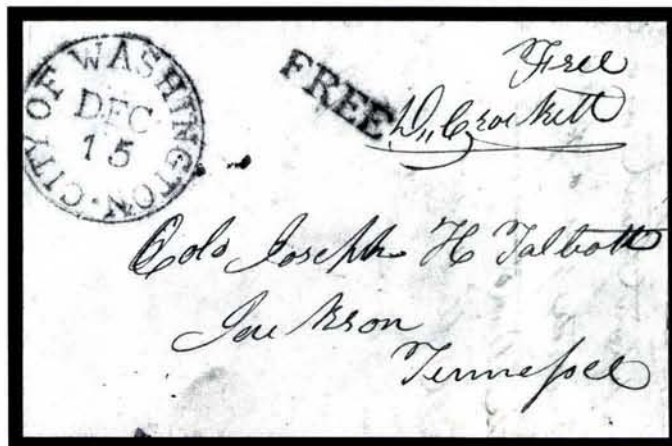 CITY OF WASHINGTON
DEC
15
FREE
Free
D,, Crockett
Colo Joseph H Talbott
Jackson
Tennessee